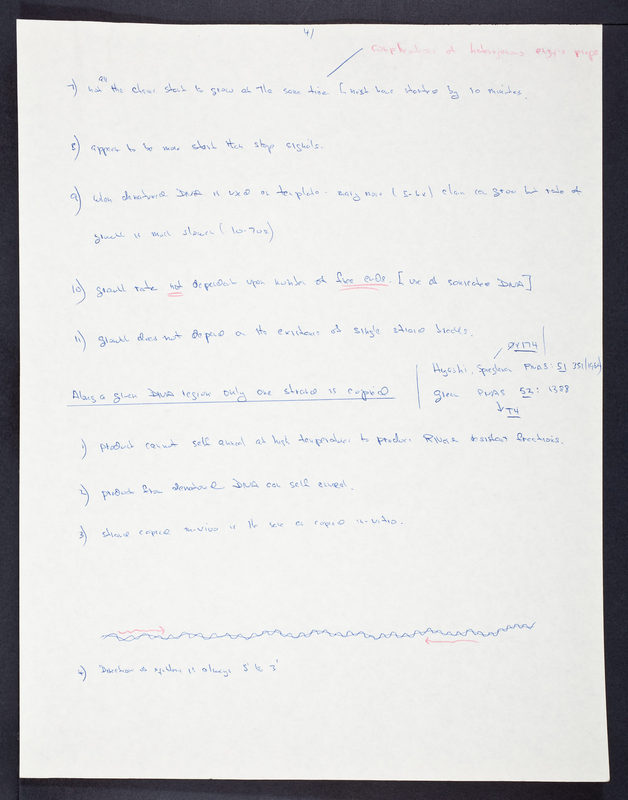 4/
complications of heterogeneous enzyme
7) not all the chains start to grow at the same time [most have started by 10 minutes.
8) appear to be more start than stop signals.
9) when denatured DNA is used as template - many more (5-6x) chains can grow but rate of
growth is much slower (10-70x)
10) growth rate not dependent upon number of free ends. [use of sonicated DNA]
11) growth does not depend on the existence of single strand breaks.
ØX174
Hayashi, Spiegelman PNAS: 51 351/1964
Along a given DNA region only one strand is copied
PNAS 52: 1388
T4
1) product cannot self anneal at high temperatures to produce RNase resistant fractions.
2) product from denatured DNA can self anneal.
3) strand copied in-vivo is the same as copied in-vitro.
4) Direction of synthesis is always 5' to 3'